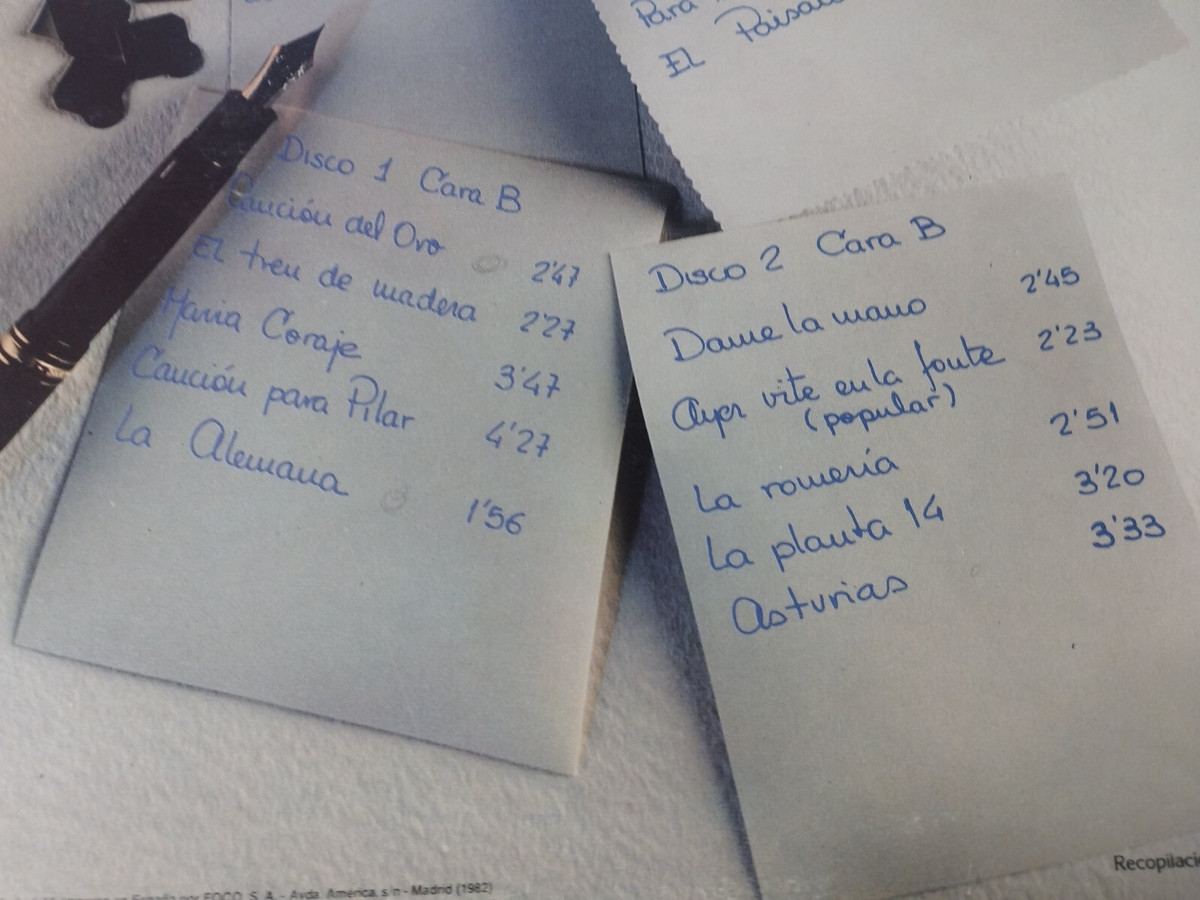 Para
El Paisa
Disco 1 Cara B
Canción del Oro 2'47
El tren de madera 2'27
Maria Coraje 3'47
Canción para Pilar 4'27
La Alemana 1'56
Disco 2 Cara B
Dame la mano 2'45
Ayer vite en la fonte 2'23
(popular)
La romería 2'51
La planta 14 3'20
Asturias 3'33
España por FOCO, S. A. - Avda. America, s/n - Madrid (1982)
Recopilació